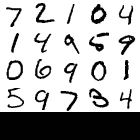 7 2 1 0 4
1 4 9 5 9
0 6 9 0 1
5 9 7 3 4